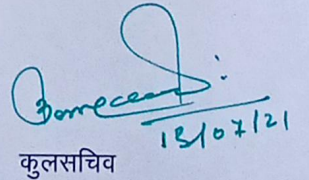 13/07/21
कुलसचिव